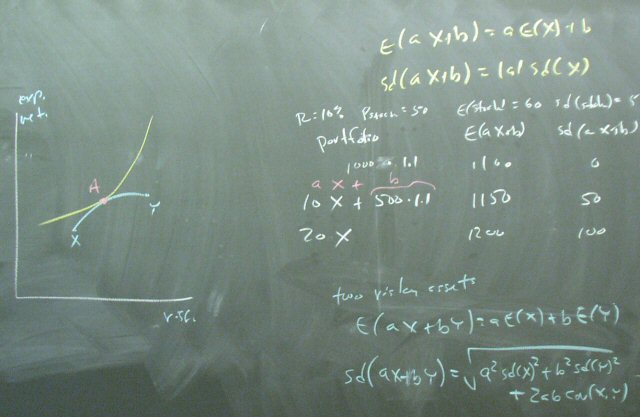 E(aX+b) = aE(X)+b
sd(aX+b) = |a| sd(X)
exp.
ret.
A
X
Y
risk
R=10% Pstock=50 E(stock)=60 sd(stock)=5
portfolio E(aX+b) sd(aX+b)
1000 · 1.1 1100 0
a X + b
10 X + 500·1.1 1150 50
20 X 1200 100
two risky assets
E(aX+bY)=aE(X)+bE(Y)
sd(aX+bY)=√a² sd(X)² + b² sd(Y)²
+ 2ab cov(X,Y)